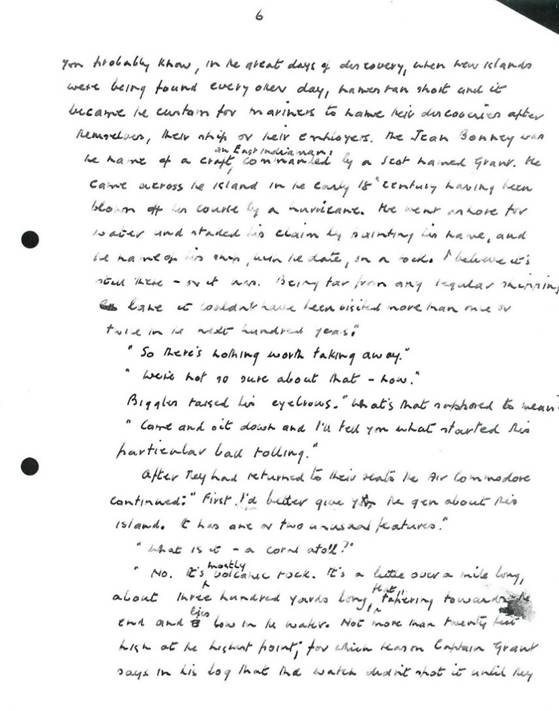 6
you probably know, in the great days of discovery, when new islands
were being found every other day, names ran short and it
became the custom for mariners to name their discoveries after
themselves, their ship or their employers. The Jean Bonney was
an East Indiaman,
the name of a craft, commanded by a Scot named Grant. He
came across the island in the early 18th century having been
blown off his course by a hurricane. He went ashore for
water and staked his claim by painting his name, and
the name of his ship, with the date, on a rock. I believe it's
still there - or it was. Being far from any regular shipping
lane it couldn't have been visited more than once or
twice in the next hundred years."
"So there's nothing worth taking away."
"We're not so sure about that - now."
Biggles raised his eyebrows. "What's that supposed to mean?
"Come and sit down and I'll tell you what started this
particular ball rolling."
After they had returned to their seats the Air Commodore
continued: "First I'd better give you the gen about this
island. It has one or two unusual features."
"What is it - a coral atoll?"
mostly
"No. It's volcanic rock. It's a little over a mile long,
about three hundred yards long, tapering towards the
lies
end and low in the water. Not more than twenty feet
high at the highest point; for which reason Captain Grant
says in his log that the watch didn't spot it until they